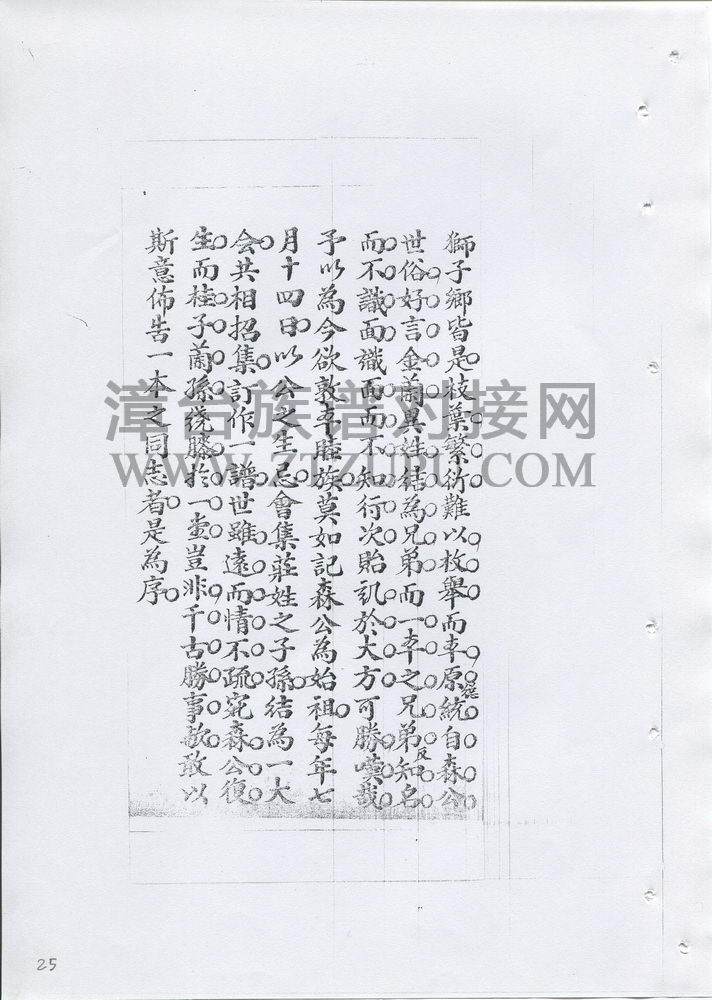 獅子鄉皆是枝葉繁衍難以枚舉而本原統自森公
世俗好言金蘭異姓結為兄弟而一本之兄弟反知名
而不識面識面而不知行次貽譏於大方可勝嘆哉
予以為今欲敦本睦族莫如記森公為始祖每年七
月十四日以公之生忌會集莊姓之子孫結為一大
会共相招集訂作一譜世雖遠而情不疏宛森公復
生而桂子蘭孫繞膝於一堂豈非千古勝事歟敢以
斯意佈告一本之同志者是為序
漳台族谱对接网
WWW.ZTZUPU.COM
25